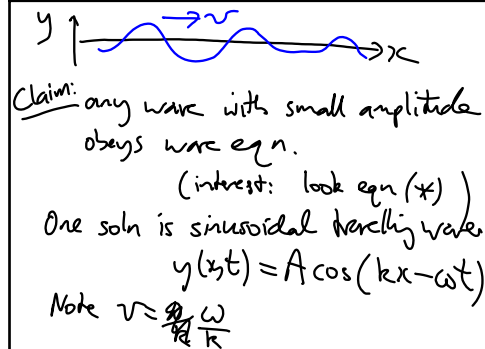 y → v
x
Claim: any wave with small amplitude
obeys wave eqn.
(interest: look eqn (*))
One soln is sinusoidal travelling wave
y(x,t) = A cos(kx - ωt)
Note v = ω/k